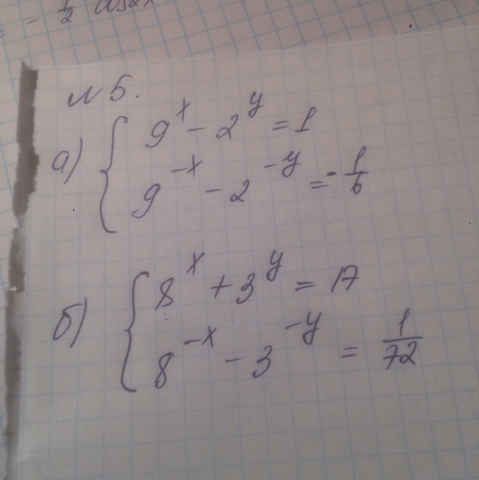 №5.
а) { 9^x - 2^y = 1
9^{-x} - 2^{-y} = -1/6
б) { 8^x + 3^y = 17
8^{-x} - 3^{-y} = 1/72